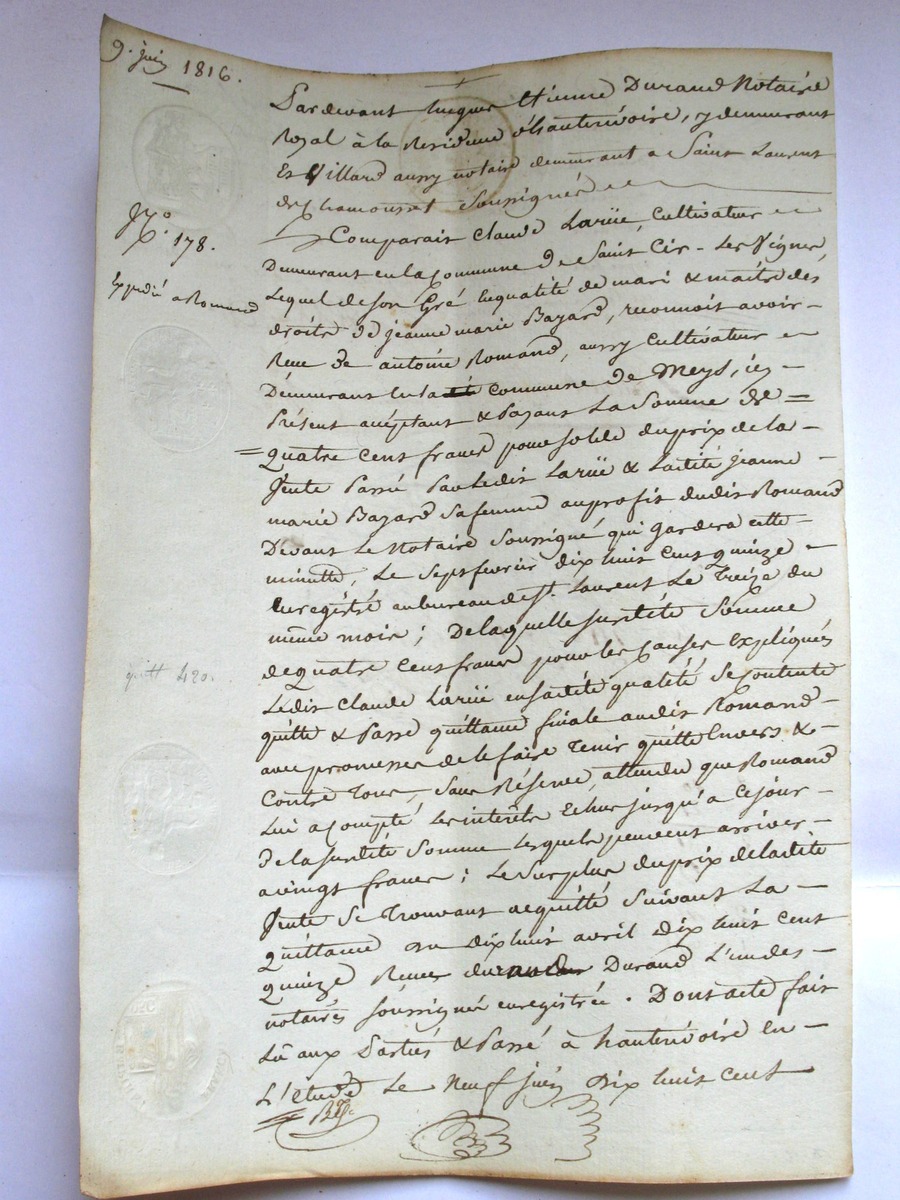 9. juin 1816.
Pardevant Me jacques Etienne Durand Notaire
Royal à la Residence d'hauterivoire, y demeurant
Et Villard aussy notaire demeurant a Saint Laurent
de Chamousset Soussignés
N.o 178.
Comparait Claude Larüe, Cultivateur
Demeurant en la Commune de Saint Cir - Les Vignes
Expedié a Romand
Lequel de son Gré En qualité de mari & maitre des
droits de jeanne marie Bazard, reconnoit avoir
Recu de antoine Romand, aussy Cultivateur
Demeurant En la commune de Meys, icy
Présent acceptant & Payant La Somme de =
= quatre Cent francs pour solde du prix de la
Vente Passé Par Ledit Larüe & Ladité jeanne
marie Bazard Sa femme au profit dudit Romand
Devant Le Notaire Soussigné qui Gardera cette
minutte, Le Sept fevrier dix huit Cent quinze
Enregistré au bureau de St. Laurent Le Treize du
même mois ; De laquelle susdité Somme
de quatre Cent francs pour les Causes Expliquées
quitt 420.
Ledit Claude Larüe en sadité qualité Se contente
quitte & Passe quittance finale audit Romand
avec promesse de le faire Tenir quitte Envers &
Contre Tous, Sans Réserve, attendu que Romand
Lui a Compté Les interêts Echus jusqu'a Ce jour
de la Susdité Somme Lesquels peuvent arriver
a vingt francs ; Le Surplus du prix de ladite
Vente Se Trouvant acquitté Suivant La
quittance du dix huit avril dix huit Cent
quinze Recue Durand L'un des
notaires soussignés enregistrée. Dont acte fait
Lû aux Parties & Passé à hauterivoire En
L'etude Le Neuf juin dix huit Cent